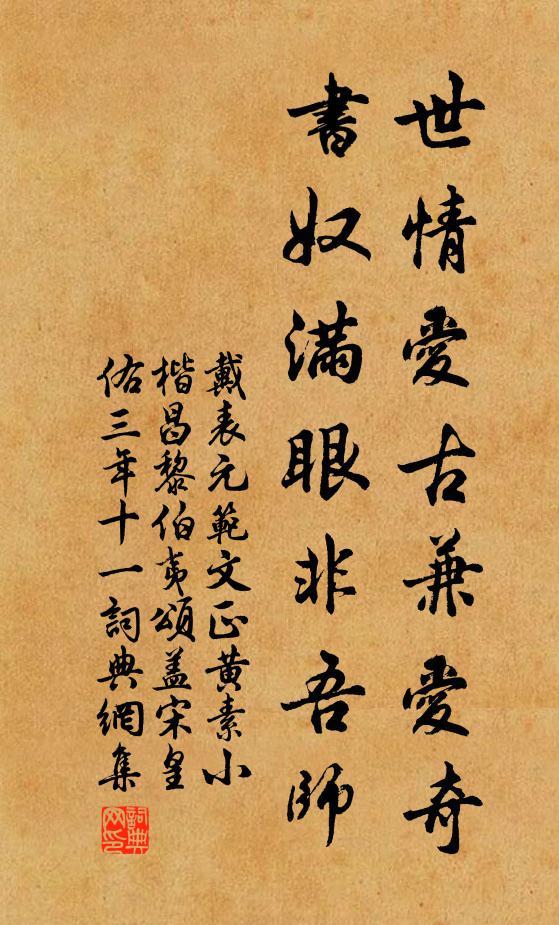 世情愛古兼愛奇
書奴滿眼非吾師
戴表元範文正黃素小
楷昌黎伯夷頌蓋宋皇
佑三年十一詞典網集
詞典网印